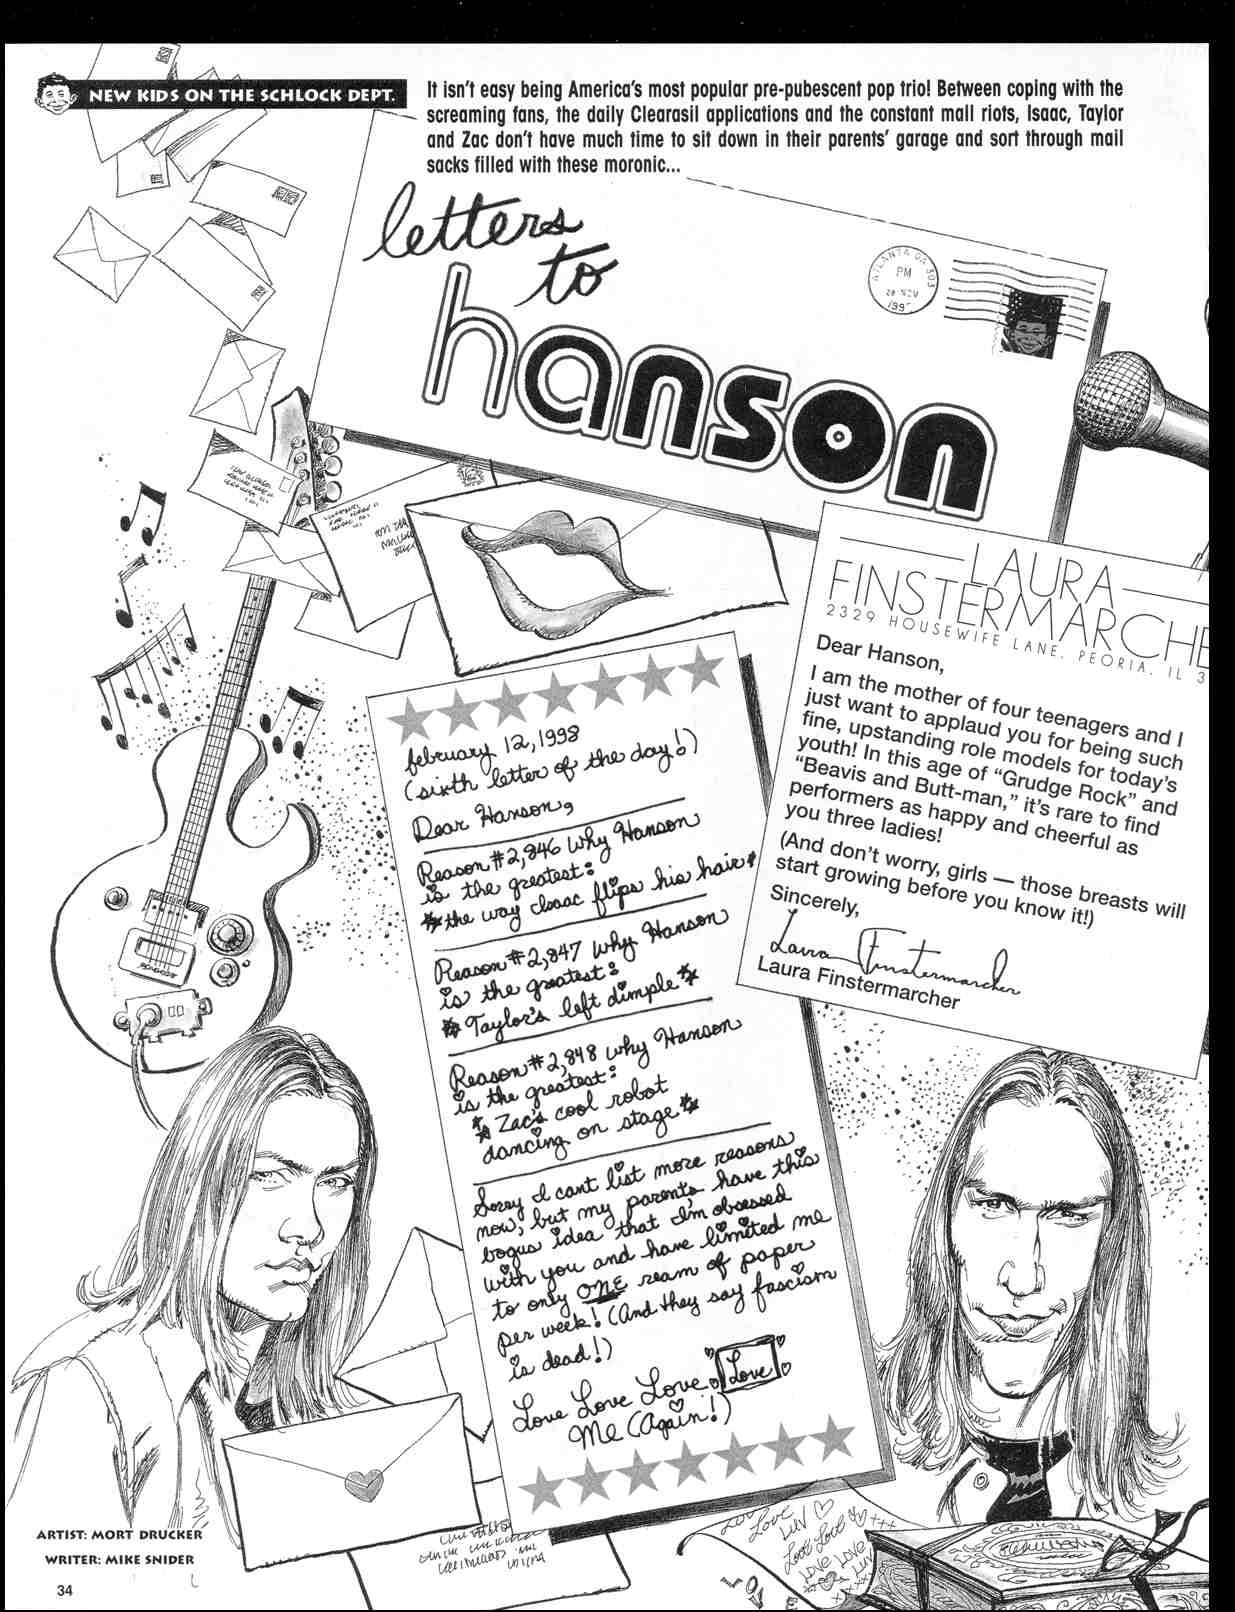 NEW KIDS ON THE SCHLOCK DEPT.
It isn't easy being America's most popular pre-pubescent pop trio! Between coping with the
screaming fans, the daily Clearasil applications and the constant mall riots, Isaac, Taylor
and Zac don't have much time to sit down in their parents' garage and sort through mail
sacks filled with these moronic...
letters
to
hanson
ATLANTA GA 303
PM
28 NOV
199
LAURA
FINSTERMARCHE
2329 HOUSEWIFE LANE, PEORIA, IL 3
Dear Hanson,
I am the mother of four teenagers and I
just want to applaud you for being such
fine, upstanding role models for today's
youth! In this age of "Grudge Rock" and
"Beavis and Butt-man," it's rare to find
performers as happy and cheerful as
you three ladies!
(And don't worry, girls — those breasts will
start growing before you know it!)
Sincerely,
Laura Finstermarcher
Laura Finstermarcher
february 12, 1998
(sixth letter of the day!)
Dear Hanson,
Reason #2,846 why Hanson
is the greatest:
*the way Isaac flips his hair*
Reason #2,847 why Hanson
is the greatest:
* Taylor's left dimple *
Reason #2,848 why Hanson
is the greatest:
* Zac's cool robot
dancing on stage *
Sorry I cant list more reasons
now, but my parents have this
bogus idea that I'm obsessed
with you and have limited me
to only ONE ream of paper
per week! (And they say fascism
is dead!)
Love Love Love, Love
Me (Again!)
Love
Love
LUV
Love Love
LOVE LOVE
LUV
LOV
ARTIST: MORT DRUCKER
WRITER: MIKE SNIDER
34